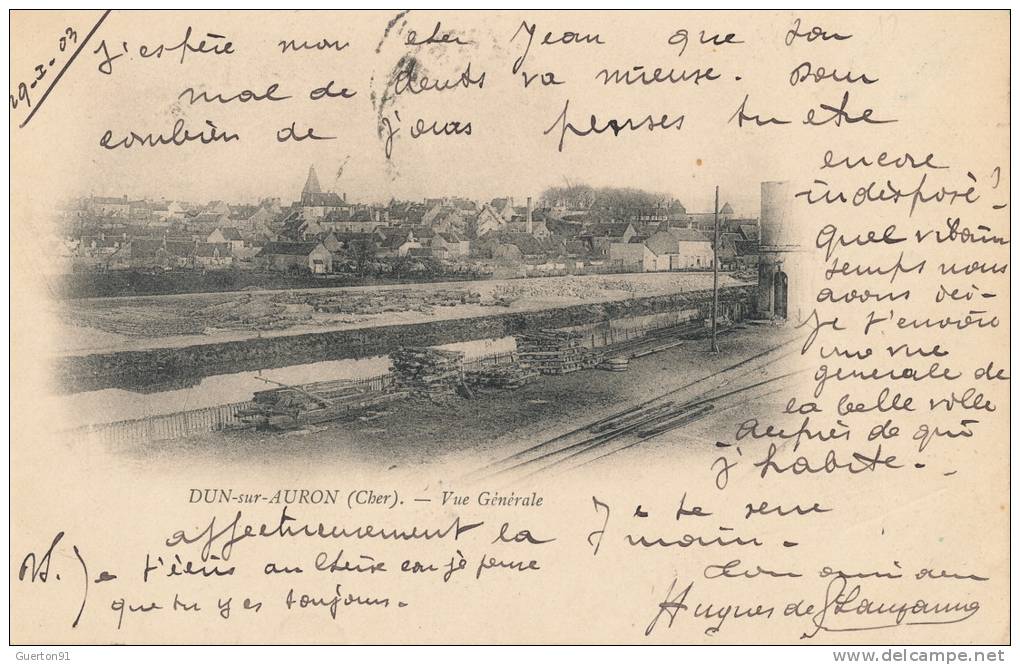 29-I-03
J'espère mon cher Jean que ton
mal de dents va mieux. Pour
combien de j'ours penses tu etre
encore
indisposé?
Quel vilain
temps nous
avons ici-
Je t'envoie
une vue
générale de
la belle ville
auprès de qui
j'habite.-
DUN-sur-AURON (Cher). — Vue Générale
Je te serre
affectueusement la main.
Ton ami
Hugues de
Je t'écris au car je pense
que tu y es toujours.
Guerton91
www.delcampe.net